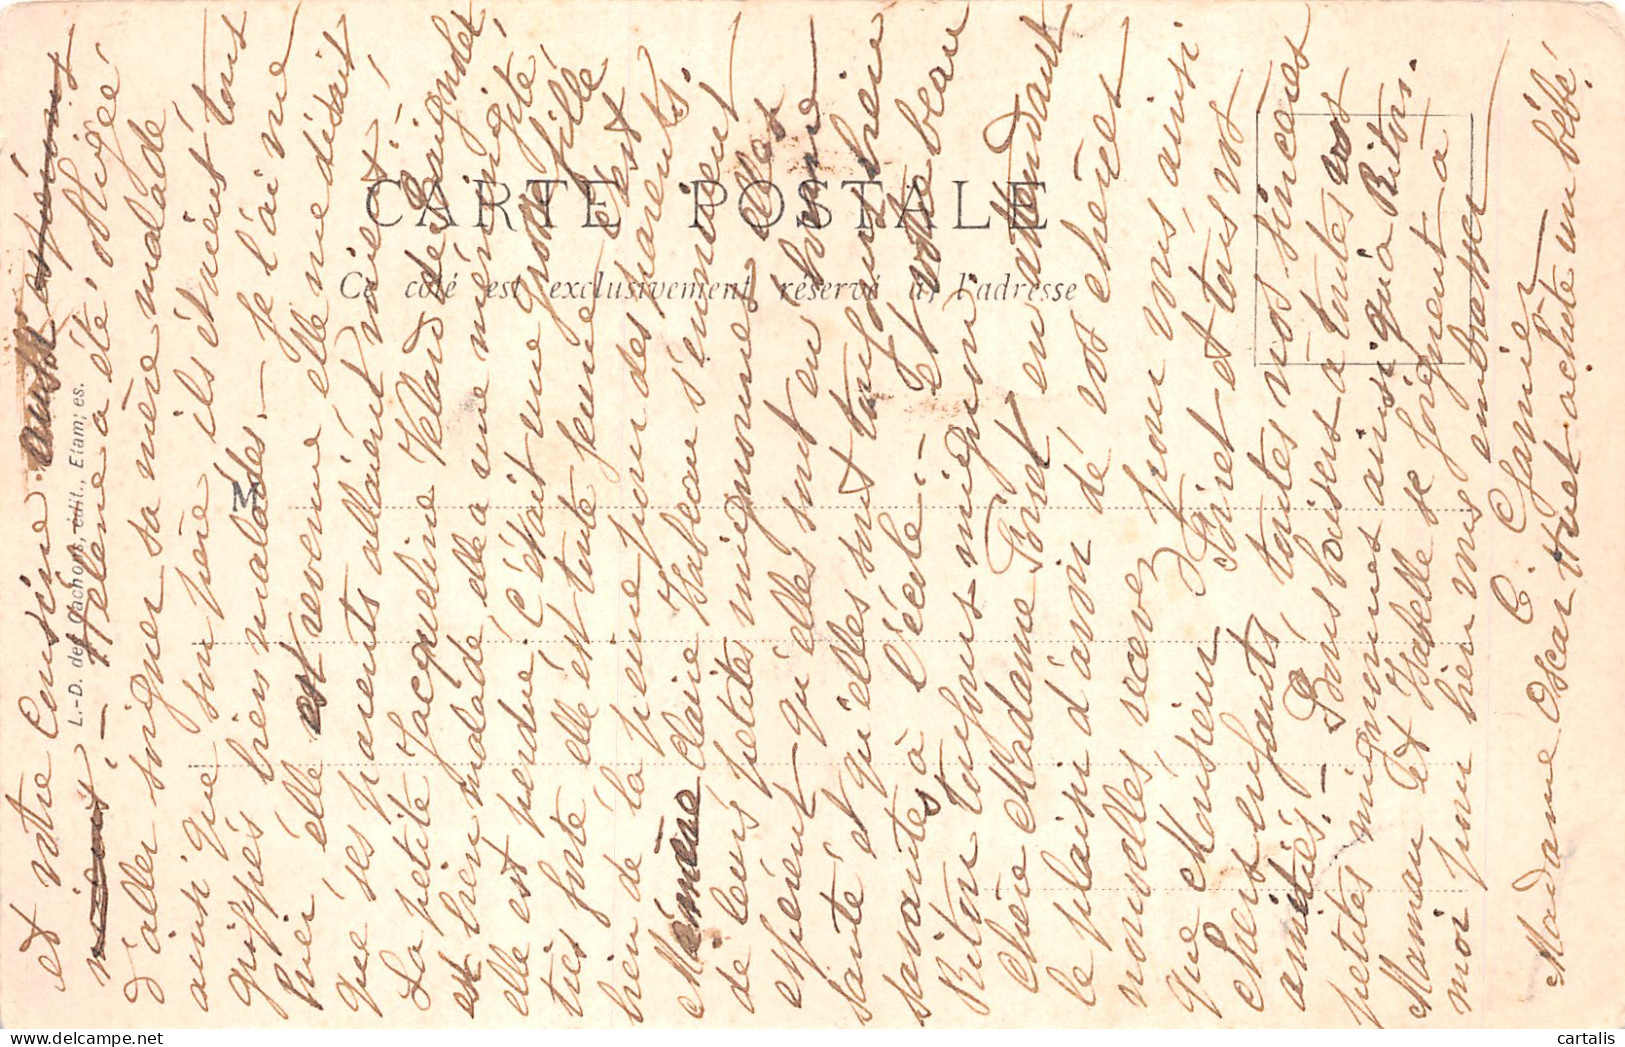 CARTE POSTALE
Ce côté est exclusivement réservé à l'adresse
L.-D. des Gachons, édit., Etampes.
et votre Cousine aussi
Hélène a été obligée
d'aller soigner sa mère malade
ainsi que son père ils étaient tous
grippés bien malades. — Je l'ai vue
hier elle est revenue elle me disait
que ses parents allaient mieux!
La petite Jacqueline Velard de Saignolet
est bien malade elle a une méningite
elle est perdue. C'était une grosse fille
très forte elle est toute jeune c'est
bien de la peine pour des parents.
Mémère Claire Isabeau s'ennuient
de leurs petites mignonnes elles
espèrent qu'elles sont en bonne
santé et qu'elles sont toujours bien
savantes à l'école. — Et votre beau
Riton toujours mignon
Chère Madame Poret en attendant
le plaisir d'avoir de vos chères
nouvelles recevez pour vous ainsi
que Monsieur Poret et tous vos
chers enfants toutes nos sincères
amitiés. — Bons baisers à toutes vos
petites mignonnes ainsi qu'à Riton.
Maman et Isabelle se joignent à
moi pour bien vous embrasser
C. Garnier
Madame Oscar Huet achète un bébé
cartalis